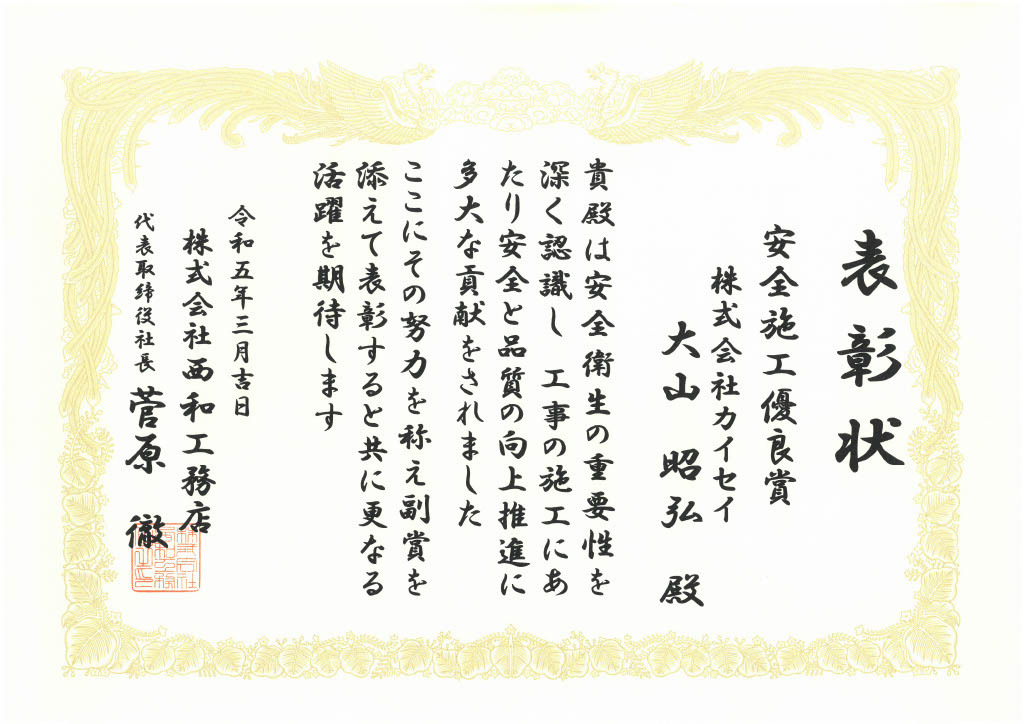 表彰状
安全施工優良賞
株式会社カイセイ
大山 昭弘 殿
貴殿は安全衛生の重要性を
深く認識し 工事の施工にあ
たり安全と品質の向上推進に
多大な貢献をされました
ここにその努力を称え副賞を
添えて表彰すると共に更なる
活躍を期待します
令和五年三月吉日
株式会社西和工務店
代表取締役社長 菅原 徹